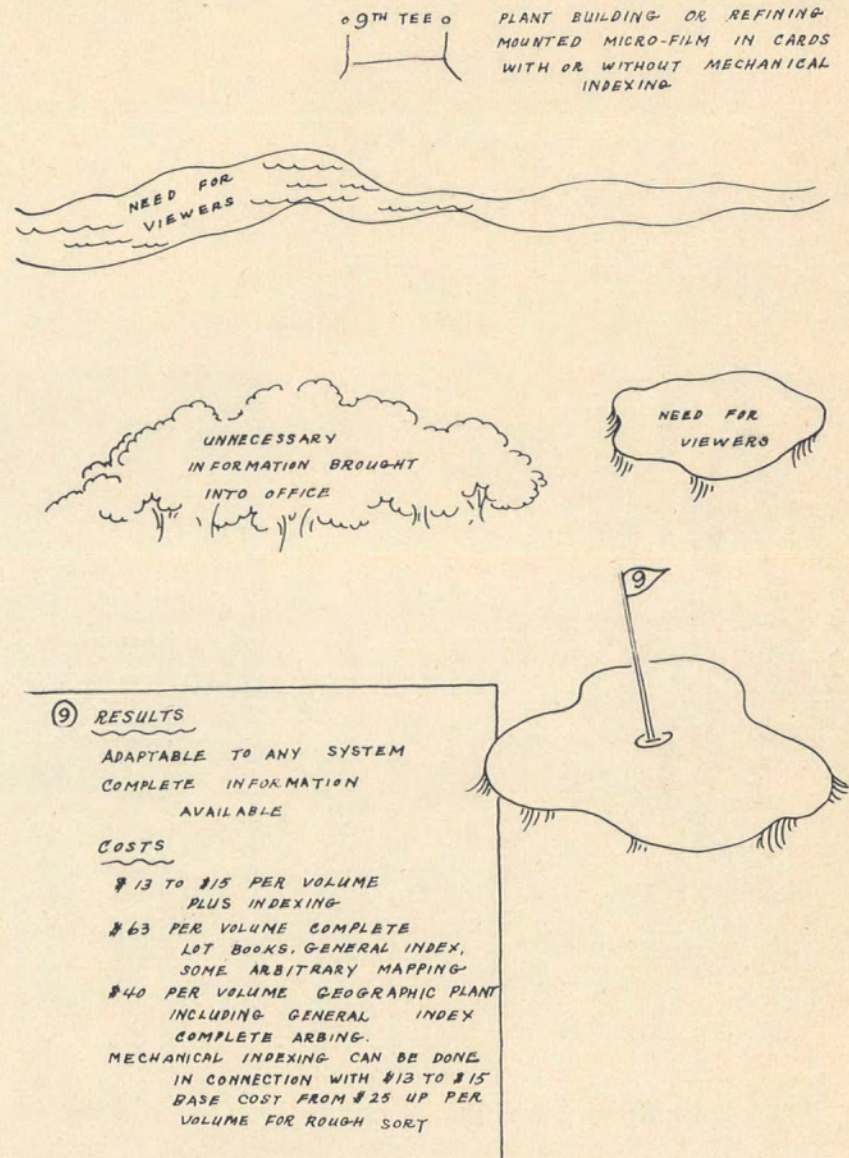 9TH TEE
PLANT BUILDING OR REFINING
MOUNTED MICRO-FILM IN CARDS
WITH OR WITHOUT MECHANICAL
INDEXING
NEED FOR
VIEWERS
UNNECESSARY
INFORMATION BROUGHT
INTO OFFICE
NEED FOR
VIEWERS
9
9 RESULTS
ADAPTABLE TO ANY SYSTEM
COMPLETE INFORMATION
AVAILABLE
COSTS
$13 TO $15 PER VOLUME
PLUS INDEXING
$63 PER VOLUME COMPLETE
LOT BOOKS, GENERAL INDEX,
SOME ARBITRARY MAPPING
$40 PER VOLUME GEOGRAPHIC PLANT
INCLUDING GENERAL INDEX
COMPLETE ARBING.
MECHANICAL INDEXING CAN BE DONE
IN CONNECTION WITH $13 TO $15
BASE COST FROM $25 UP PER
VOLUME FOR ROUGH SORT